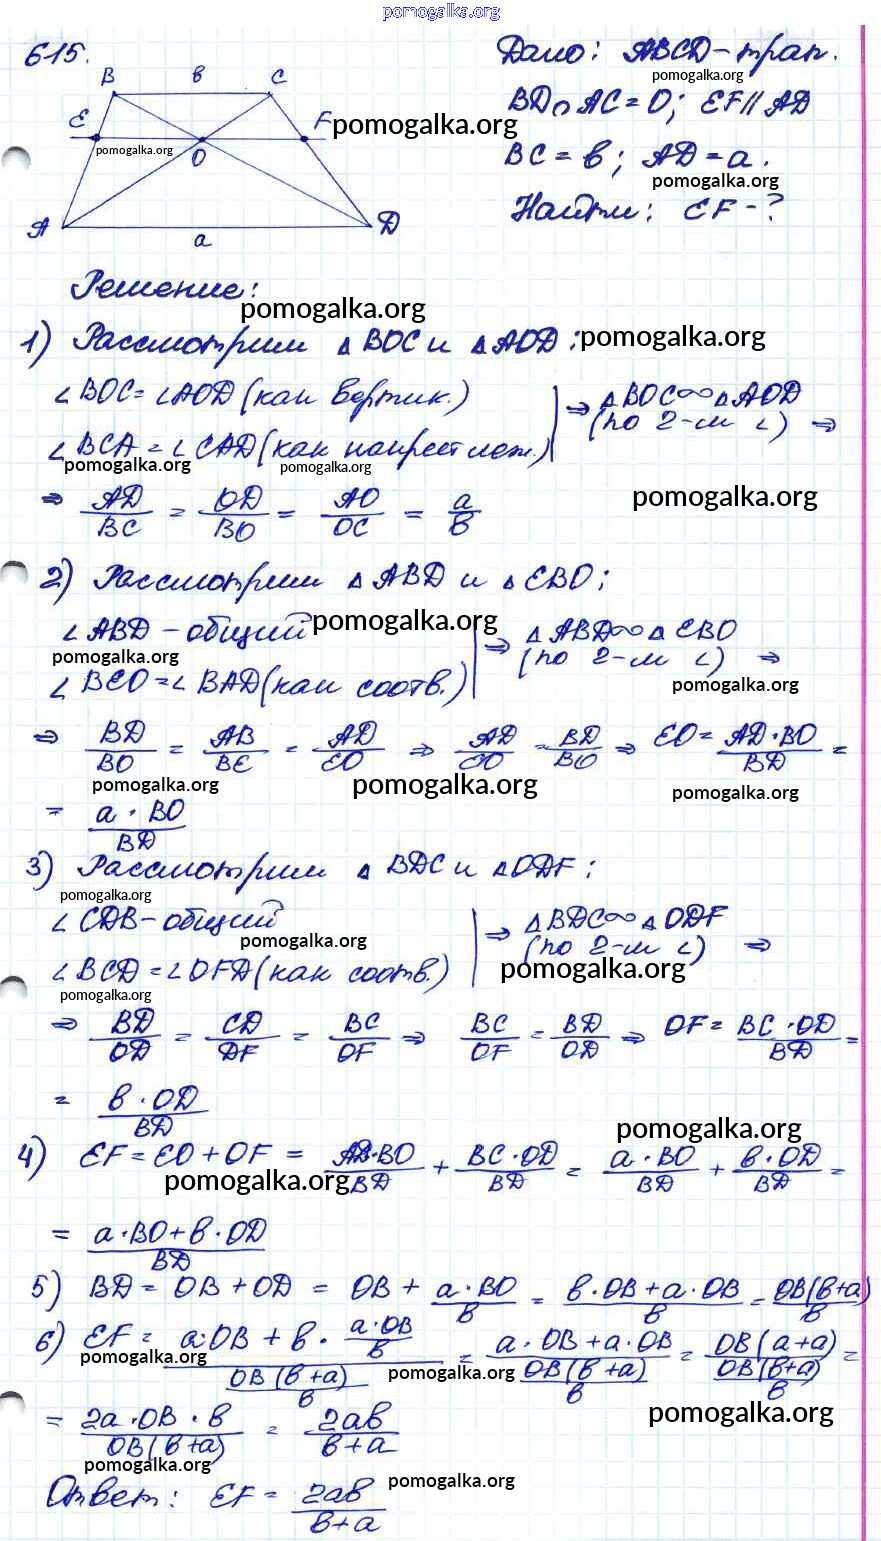 pomogalka.org
615.
B в C
E F pomogalka.org
pomogalka.org
O
A a D
Дано: ABCD-трап.
pomogalka.org
BD∩AC=O; EF//AD
BC=в; AD=a.
pomogalka.org
Найти: EF-?
Решение:
pomogalka.org
1) Рассмотрим △BOC и △AOD: pomogalka.org
∠BOC=∠AOD(как вертик.) ⇒ △BOC∞△AOD
(по 2-м ∠) ⇒
∠BCA=∠CAD(как накрест леж.)
pomogalka.org pomogalka.org
⇒ AD/BC = OD/BO = AO/OC = a/в pomogalka.org
2) Рассмотрим △ABD и △EBO;
∠ABD-общий pomogalka.org ⇒ △ABD∞△EBO
pomogalka.org (по 2-м ∠) ⇒
∠BEO=∠BAD(как соотв.) pomogalka.org
⇒ BD/BO = AB/BE = AD/EO ⇒ AD/EO = BD/BO ⇒ EO = AD·BO/BD =
pomogalka.org pomogalka.org pomogalka.org
= a·BO/BD
3) Рассмотрим △BDC и △ODF:
pomogalka.org
∠CDB-общий ⇒ △BDC∞△ODF
pomogalka.org (по 2-м ∠) ⇒
∠BCD=∠OFD(как соотв.) pomogalka.org
pomogalka.org
⇒ BD/OD = CD/DF = BC/OF ⇒ BC/OF = BD/OD ⇒ OF = BC·OD/BD =
= в·OD/BD
pomogalka.org
4) EF=EO+OF = AD·BO/BD + BC·OD/BD = a·BO/BD + в·OD/BD =
pomogalka.org
= a·BO+в·OD/BD
5) BD = OB+OD = OB + a·BO/в = в·OB+a·OB/в = OB(в+a)/в
6) EF = a·OB + в·a·OB/в / OB(в+a)/в = a·OB+a·OB / OB(в+a)/в = OB(a+a) / OB(в+a)/в =
pomogalka.org pomogalka.org
= 2a·OB·в/OB(в+a) = 2aв/в+a pomogalka.org
pomogalka.org
Ответ: EF = 2aв/в+a pomogalka.org